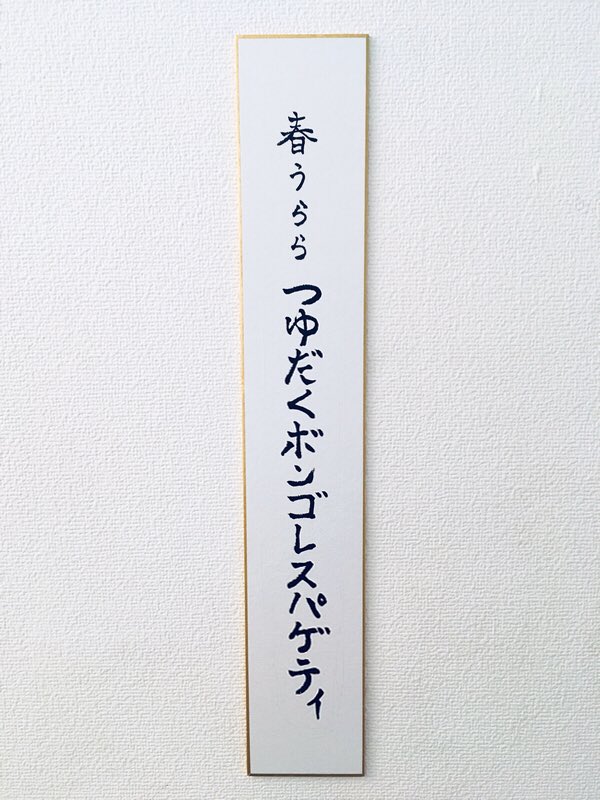 春うらら つゆだくボンゴレスパゲティ